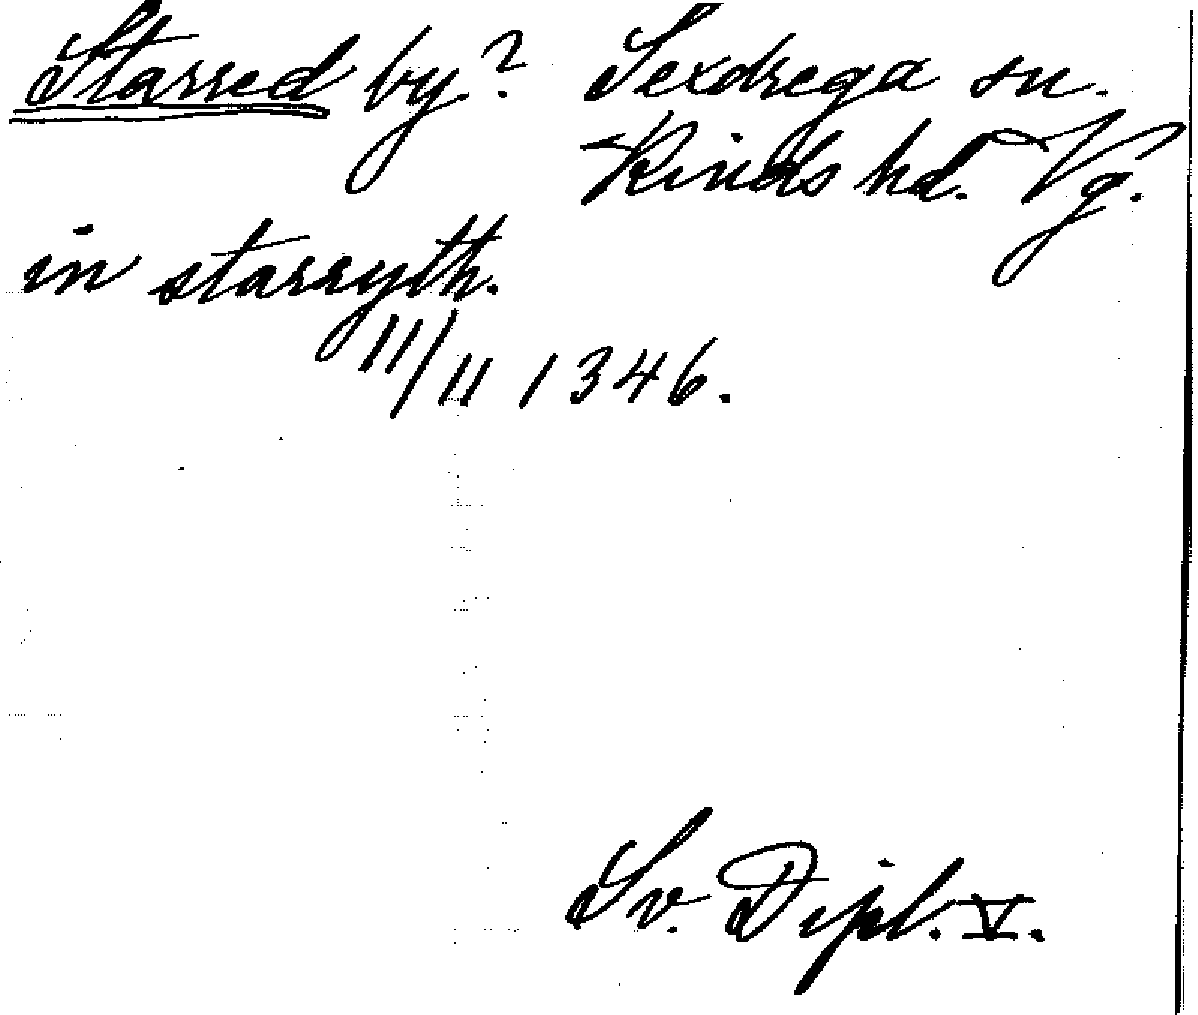 Starred by? Sexdrega sn.
Kinds hd. Vg.
in starryth.
11/11 1346.
Sv. Dipl. V.